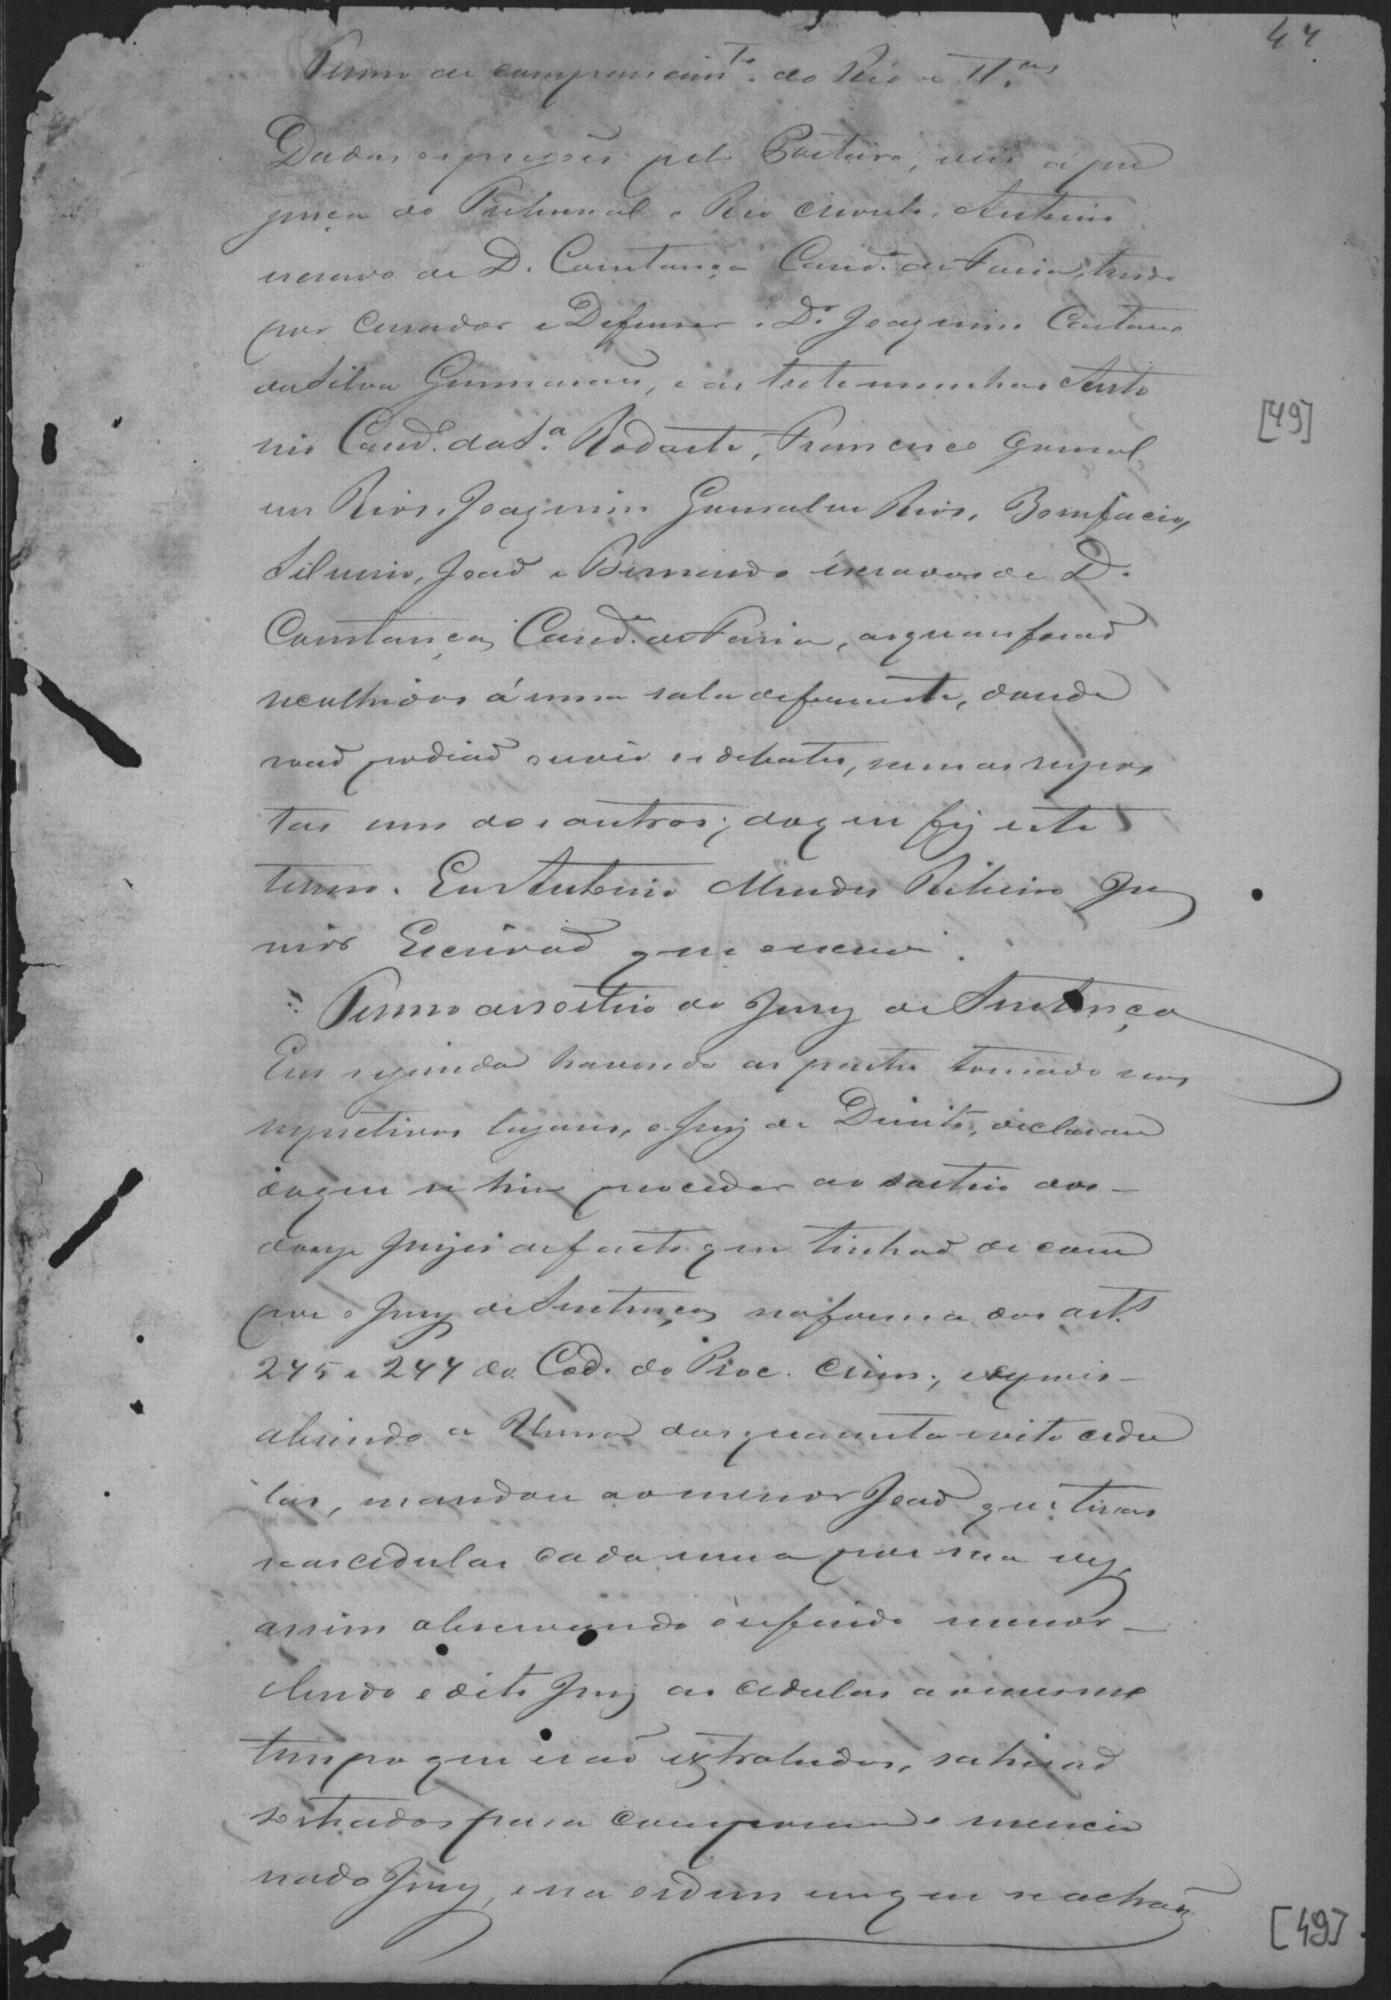 47
Termo de comparecim.to do Reo e T.as
Dadas os pregões pelo Porteiro, veio á pre
zença do Tribunal o Reo crioulo, Antonio
escravo de D. Constança Cand.a de Faria, tendo
por Curador e Defensor o Dr. Joaquim Caetano
da Silva Guimarães, e as testemunhas Anto
nio Cand.o da S.a Rodarte, Francisco Gonsal
ves Rios, Joaquim Gonsalves Rios, Bonifacio,
Silverio, João e Bernardo escravos de D.
Constança Cand.a de Faria, as quaes forão
recolhidas á uma sala differente, donde
não podião ouvir os debates, nem as respos
tas uns dos outros; do q̃ eu fiz este
termo. Eu Antonio Mendes Ribeiro Ju
nior Escrivão que escrevi.
Termo do sorteio do Jury de Sentença
Em seguida havendo as partes tomado seus
respectivos lugares, o Juiz de Direito, declaran
do que se hia proceder ao sorteio dos
doze Juizes de facto que tinhão de com
por o Jury de Sentença na forma dos art.s
275 e 277 do Cod. do Proc. Crim., e depois
abrindo a Urna das quarenta e oito cedu
las, mandou ao menor João que tiras
se as cedulas cada uma por sua vez,
assim observando o referido menor
e lendo o dito Juiz as cedulas ao mesmo
tempo que erão extrahidas, sahirão
sorteados para comporem o mencio
nado Jury, e na ordem em que se achão
[49]
[49]